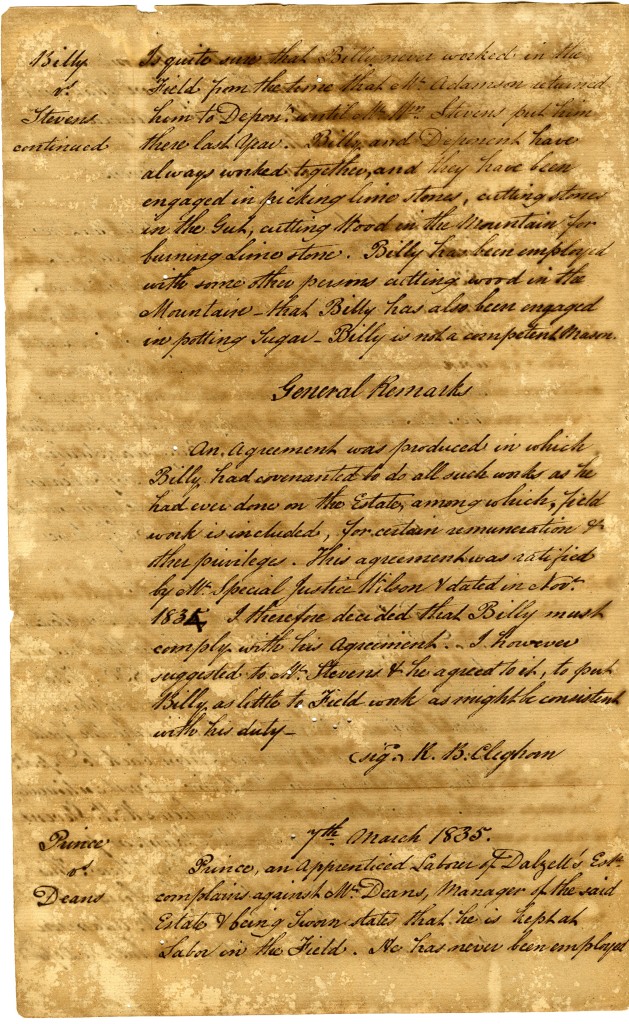 Billy
vs
Stevens
continued
Is quite sure that Billy never worked in the
Field from the time that Mr. Adamson returned
him to Depont. until Mr. Wm. Stevens put him
there last year. Billy and Deponent have
always worked together, and they have been
engaged in picking lime stones, cutting stones
in the Gut, cutting Wood in the Mountain for
burning Lime stone. Billy has been employed
with some other persons cutting wood in the
Mountain - that Billy has also been engaged
in potting Sugar - Billy is not a competent Mason.
General Remarks
An Agreement was produced in which
Billy had covenanted to do all such works as he
had ever done on the Estate, among which, field
work is included, for certain remuneration &
other privileges. This agreement was ratified
by Mr. Special Justice Wilson & dated in Novr.
1834 I therefore decided that Billy must
comply with his Agreement. - I however
suggested to Mr. Stevens & he agreed to it, to put
Billy as little to Field work as might be consistent
with his duty -
sigd. R. B. Cleghorn
Prince
vs
Deans
7th March 1835.
Prince, an Apprenticed Laborer of Dalzell's Este.
complains against Mr. Deans, Manager of the said
Estate & being Sworn states that he is kept at
Labor in the Field. He has never been employed